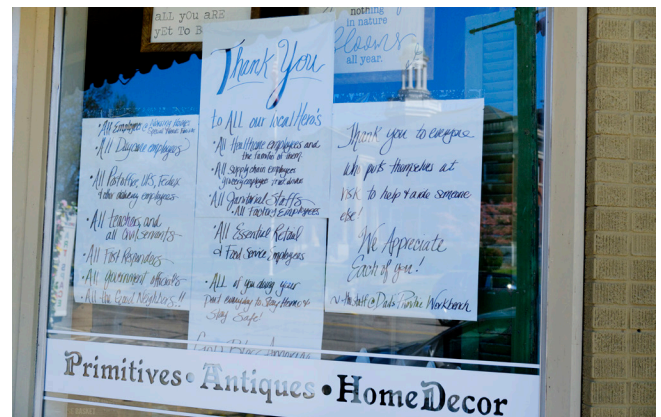 all yOu aRE
yEt To B
nothing
in nature
blooms
all year.
Thank You
to ALL our local Hero's
• All Healthcare employees and
the families of them.
• All Supply chain employees
grocery employees
• All Janitorial Staffs
• All Factory Employees
• All Essential Retail
& Food Service Employees
• ALL of you doing your
part everyday to Stay Home &
Stay Safe!
God Bless America
• All Employees @ Nursing homes
• All Daycare employees
• All Postoffice, UPS, Fedex
& other delivery employees
• All teachers and
all civil servants
• All First Responders
• All government officials
• All the Good Neighbors!!
Thank you to everyone
who puts themselves at
risk to help & aide someone
else!
We Appreciate
Each of you!
~ the staff @ Dad's Primitive Workbench
Primitives • Antiques • Home Decor